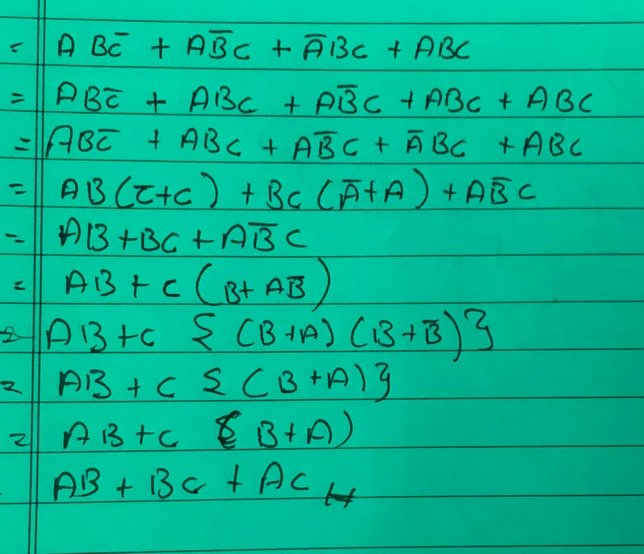 = ABC̅ + AB̅C + A̅BC + ABC
= ABC̅ + ABC + AB̅C + ABC + ABC
= ABC̅ + ABC + AB̅C + A̅BC + ABC
= AB(C̅+C) + BC(A̅+A) + AB̅C
= AB+BC+AB̅C
= AB+C(B+AB̅)
= AB+C {(B+A)(B+B̅)}
= AB+C {(B+A)}
= AB+C (B+A)
AB + BC + AC